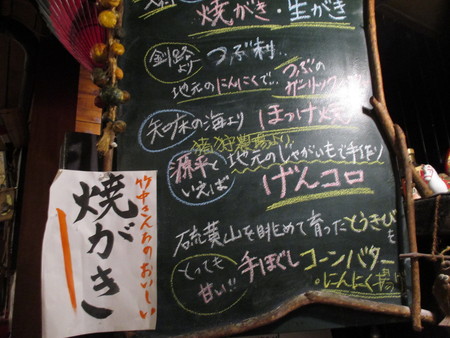 焼がき・生がき
釧路より
つぶ刺
地元のにんにくで
つぶの
ガーリック
知床の海より
ほっけ焼
猪狩農場より
源平といえば
地元のじゃがいもで手作り
げんコロ
硫黄山を眺めて育ったとうきびを
とっても甘い!!
手ほぐしコーンバター
・にんにく
竹中さんちのおいしい
焼がき